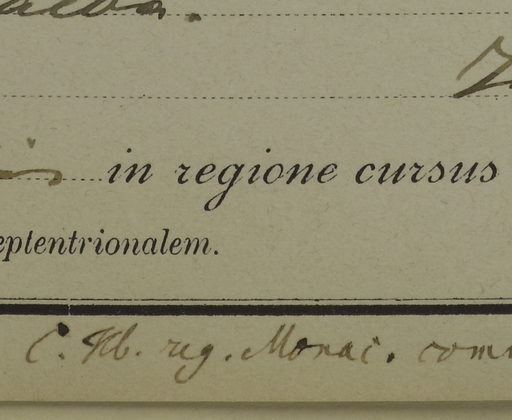 in regione cursus
eptentrionalem.
C. Hb. reg. Monac. com